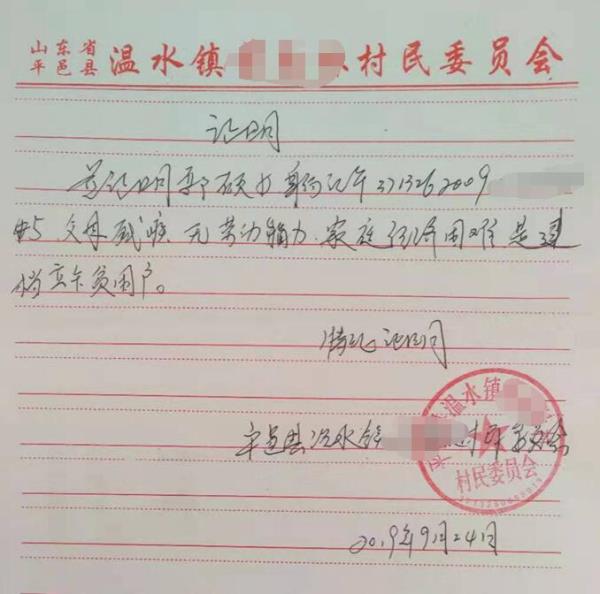 山东省
平邑县 温水镇 村民委员会
证明
兹证明郭硕 身份证号3713262009
父母残疾，无劳动能力，家庭经济困难是建
档立卡贫困户。
特此证明
平邑县温水镇 村村民委员会
温水镇
村民委员会
2019年9月24日